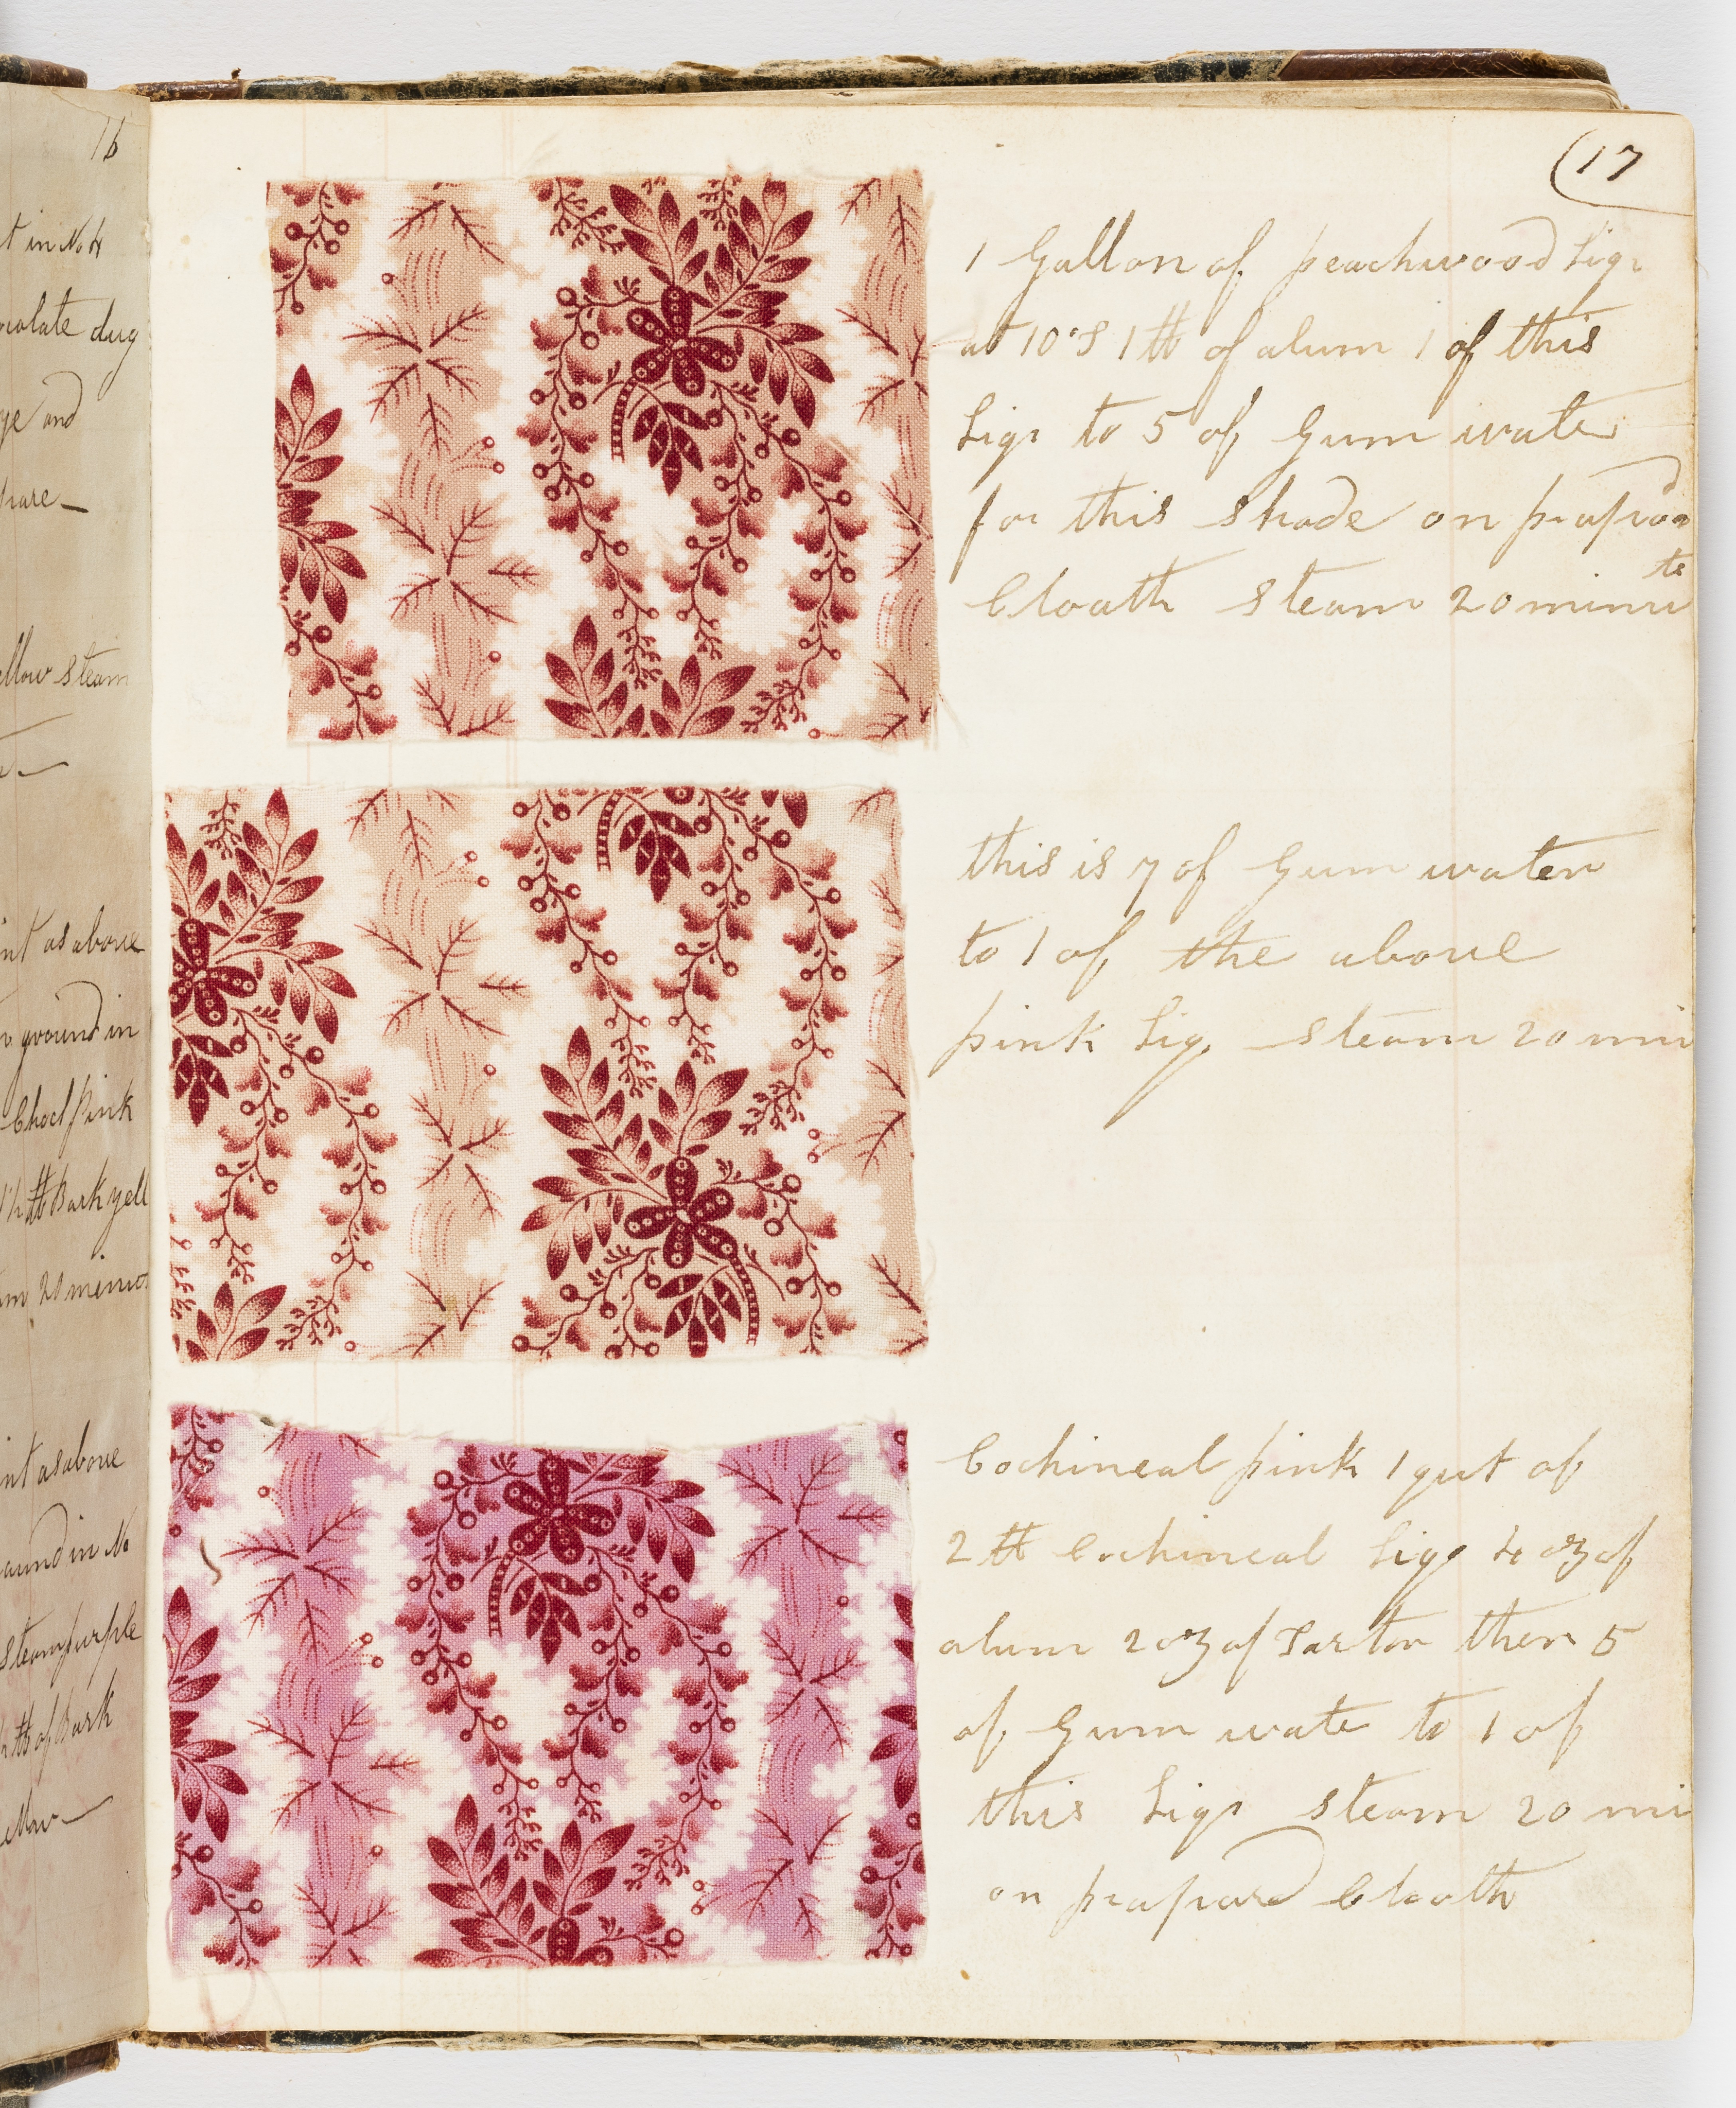 16
t in No 4
ocolate dug
ye and
pare—
ellow steam
int as above
ground in
Chocl pink
1/2 ℔ Bark yell
m 20 minut
int as above
ound in No
steam purple
℔ of Bark
ellow—
17
1 Gallon of peachwood Liqr
at 10°S 1 ℔ of alum 1 of this
Liqr to 5 of Gum water
for this shade on prapard
Cloath steam 20 minu
ts
this is 7 of Gum water
to 1 of the above
pink Liq steam 20 min
Cochineal pink 1 qut of
2 ℔ Cochineal Liqr 4 oz of
alum 2 oz of Tarter then 5
of Gum wate to 1 of
this Liqr steam 20 mi
on prapard Cloath